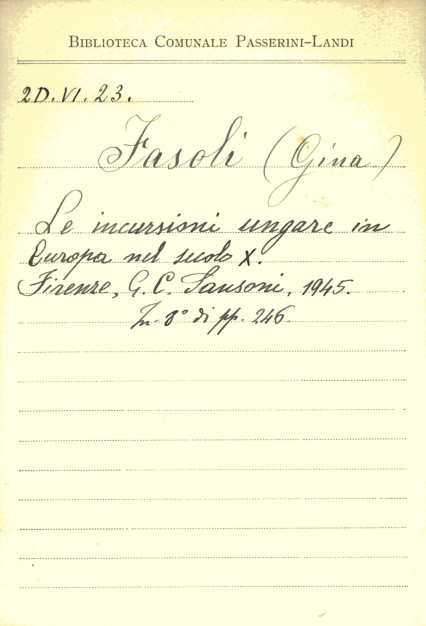 BIBLIOTECA COMUNALE PASSERINI-LANDI
2D.VI.23.
Fasoli (Gina)
Le incursioni ungare in
Europa nel secolo X.
Firenze, G. C. Sansoni, 1945.
In 8° di pp. 246.